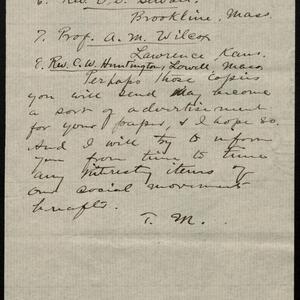 6. Rev.
Brookline, Mass.
7. Prof. A. M. Wilcox
Lawrence, Kans.
8. Rev. C. W. Huntington, Lowell, Mass.
Perhaps those copies
you will send may become
a sort of advertisement
for your paper, & I hope so.
And I will try to inform
you from time to time
any interesty items of
our social movement
hereafts.
T. M.